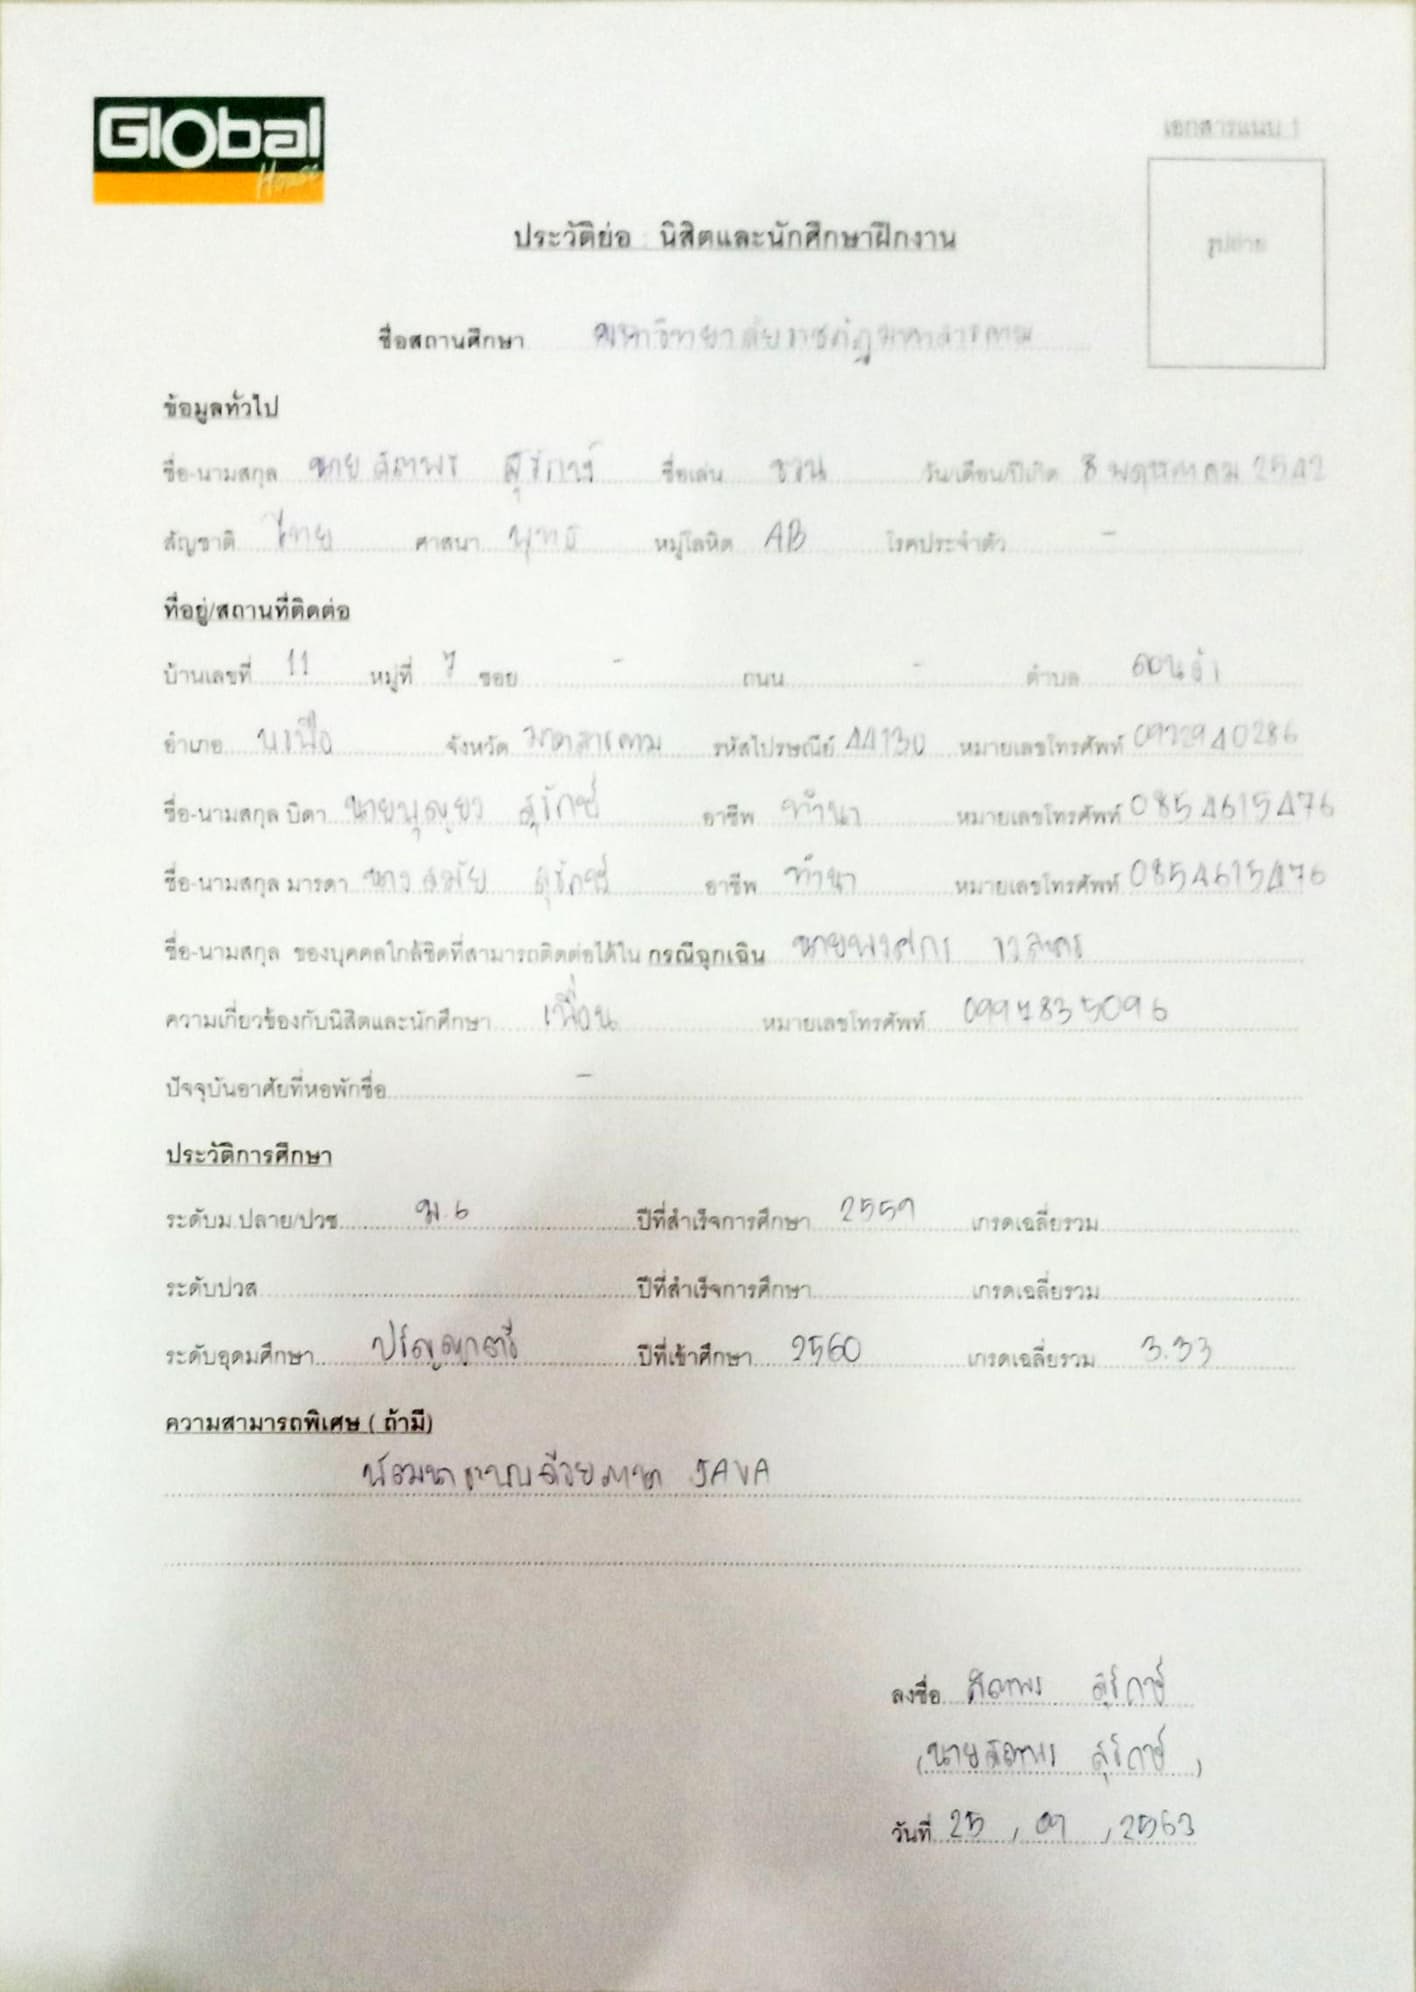 Global
House
เอกสารแนบ 1
รูปถ่าย
ประวัติย่อ นิสิตและนักศึกษาฝึกงาน
ชื่อสถานศึกษา มหาวิทยาลัยราชภัฏมหาสารคาม
ข้อมูลทั่วไป
ชื่อ-นามสกุล นาย สุริภาษ์ ชื่อเล่น ชวน วัน/เดือน/ปีเกิด 8 พฤษภาคม 2542
สัญชาติ ไทย ศาสนา พุทธ หมู่โลหิต AB โรคประจำตัว -
ที่อยู่/สถานที่ติดต่อ
บ้านเลขที่ 11 หมู่ที่ 7 ซอย - ถนน - ตำบล
อำเภอ จังหวัด มหาสารคาม รหัสไปรษณีย์ 44130 หมายเลขโทรศัพท์ 0932940286
ชื่อ-นามสกุล บิดา อาชีพ ทำนา หมายเลขโทรศัพท์ 0854615476
ชื่อ-นามสกุล มารดา นางสมัย อาชีพ ทำนา หมายเลขโทรศัพท์ 0854615476
ชื่อ-นามสกุล ของบุคคลใกล้ชิดที่สามารถติดต่อได้ใน กรณีฉุกเฉิน
ความเกี่ยวข้องกับนิสิตและนักศึกษา เพื่อน หมายเลขโทรศัพท์ 0997835096
ปัจจุบันอาศัยที่หอพักชื่อ -
ประวัติการศึกษา
ระดับม.ปลาย/ปวช. ม.6 ปีที่สำเร็จการศึกษา 2559 เกรดเฉลี่ยรวม
ระดับปวส ปีที่สำเร็จการศึกษา เกรดเฉลี่ยรวม
ระดับอุดมศึกษา ปริญญาตรี ปีที่เข้าศึกษา 2560 เกรดเฉลี่ยรวม 3.33
ความสามารถพิเศษ ( ถ้ามี)
พัฒนาระบบด้วยภาษา JAVA
ลงชื่อ
(นาย )
วันที่ 25 / 09 / 2563